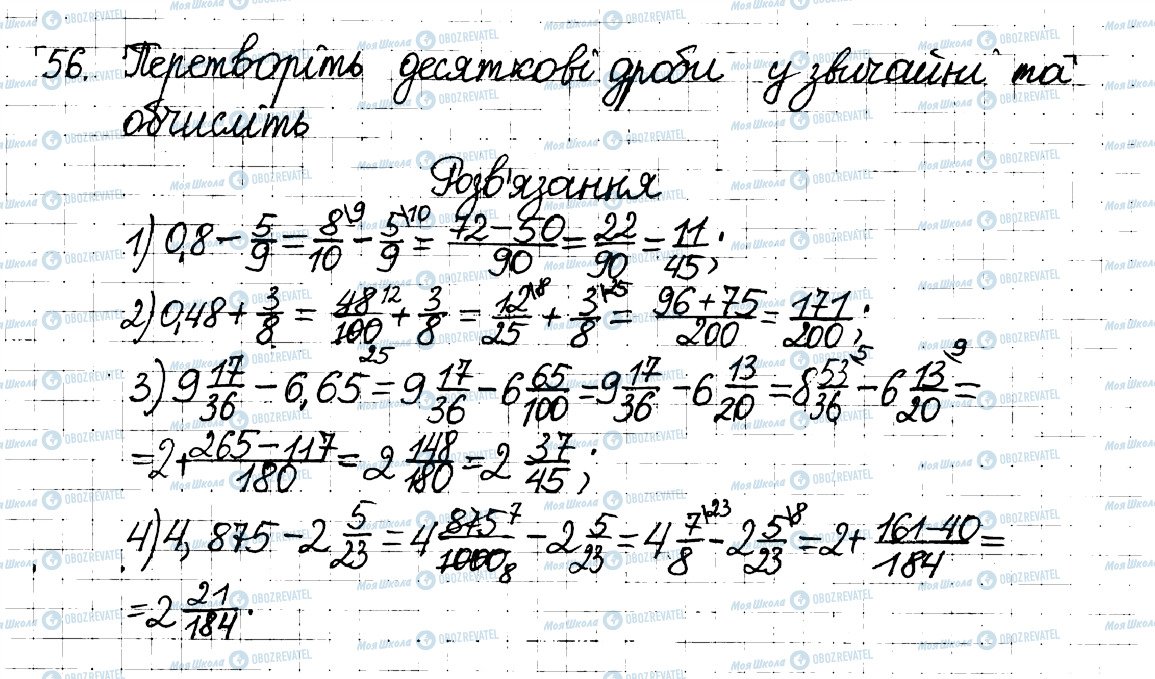 56. Перетворіть десяткові дроби у звичайні та
обчисліть
Розв'язання
1) 0,8 - 5/9 = 8/10 \9 - 5/9 \10 = (72-50)/90 = 22/90 = 11/45;
2) 0,48 + 3/8 = 48/100 12 25 + 3/8 = 12/25 \8 + 3/8 \25 = (96+75)/200 = 171/200;
3) 9 17/36 - 6,65 = 9 17/36 - 6 65/100 = 9 17/36 - 6 13/20 = 8 53/36 \5 - 6 13/20 \9 =
= 2 + (265-117)/180 = 2 148/180 = 2 37/45;
4) 4,875 - 2 5/23 = 4 875/1000 7 8 - 2 5/23 = 4 7/8 \23 - 2 5/23 \8 = 2 + (161-40)/184 =
= 2 21/184.
Моя Школа OBOZREVATEL